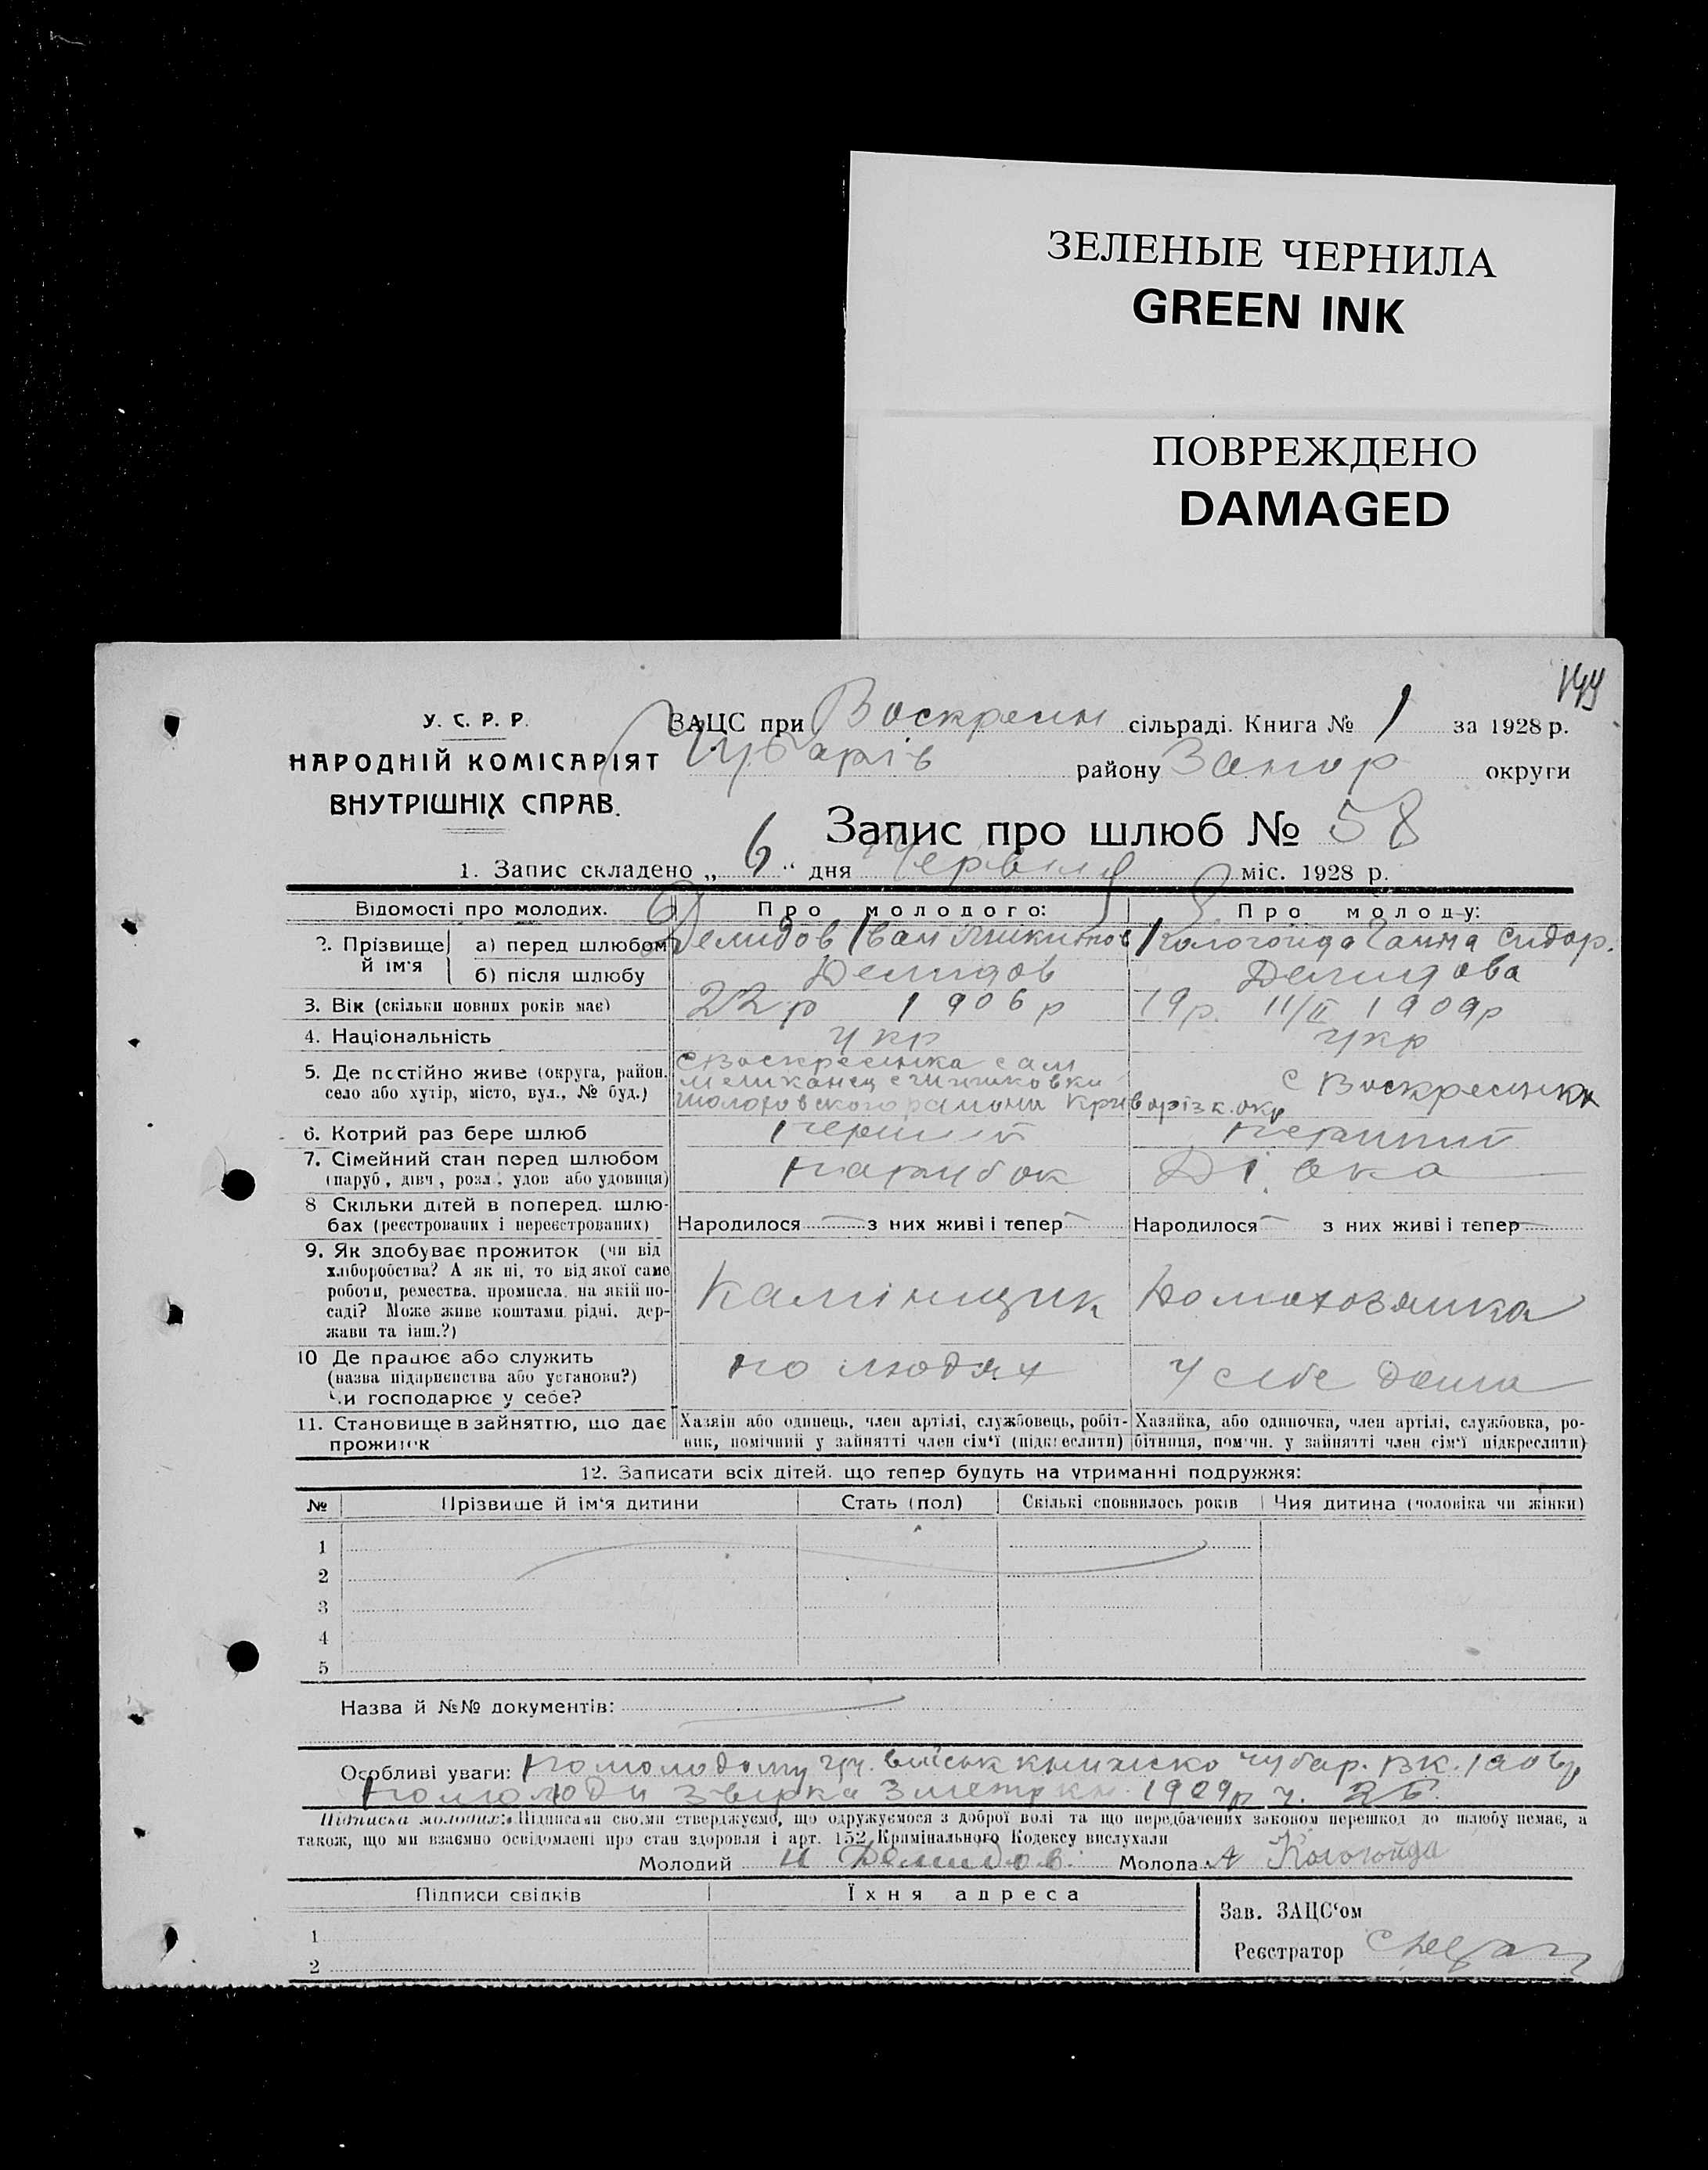 ЗЕЛЕНЫЕ ЧЕРНИЛА
GREEN INK
ПОВРЕЖДЕНО
DAMAGED
У. С. Р. Р.
НАРОДНІЙ КОМІСАРІЯТ
ВНУТРІШНІХ СПРАВ.
ЗАЦС при Воскресин сільраді. Книга № 1 за 1928 р.
Чубарів району Запор округи
Запис про шлюб № 58
1. Запис складено „ 6 “ дня Червня міс. 1928 р.
Відомості про молодих. Про молодого: Про молоду:
2. Прізвище й ім'я а) перед шлюбом Демидов Іван Коломойда Ганна Сидор.
б) після шлюбу Демидов Демидова
3. Вік (скільки повних років має) 22 р 1906 р 19 р. 11/II 1909 р
4. Національність укр укр
5. Де постійно живе (округа, район, село або хутір, місто, вул., № буд.) с Воскресинка сам мешканец с району Криворізк. окр с Воскресинка
6. Котрий раз бере шлюб перший перший
7. Сімейний стан перед шлюбом (паруб, дівч, розл, удов або удовиця) парубок Дівка
8 Скільки дітей в поперед. шлюбах (реєстрованих і нереєстрованих) Народилося — з них живі і тепер — Народилося — з них живі і тепер —
9. Як здобуває прожиток (чи від хліборобства? А як ні, то від якої саме роботи, ремества, промисла, на якій посаді? Може живе коштами рідні, держави та інш.?) Камінщик Домохозяйка
10 Де працює або служить (назва підприємства або установи?) Чи господарює у себе? по людях У себе дома
11. Становище в зайняттю, що дає прожиток Хазяїн або одинець, член артілі, службовець, робітник, помічний у зайнятті член сім'ї (підкреслити) Хазяйка, або одиночка, член артілі, службовка, робітниця, помічн. у зайнятті член сім'ї підкреслити)
12. Записати всіх дітей, що тепер будуть на утриманні подружжя:
№ Прізвище й ім'я дитини Стать (пол) Скількі сповнилось років Чия дитина (чоловіка чи жінки)
1
2
3
4
5
Назва й №№ документів:
Особливі уваги: По молодому військ книжко Чубар. ВК. 1906 р
По молоди з метрки 1909 р ч. 25.
Підписка молодих: Підписами своїми стверджуємо, що одружуємося з доброї волі та що передбачених законом перешкод до шлюбу немає, а
також, що ми взаємно освідомлені про стан здоровля і арт. 152 Кримінального Кодексу вислухали
Молодий И Демидов. Молода А Коломойда
Підписи свідків Їхня адреса
Зав. ЗАЦС'ом
1
Реєстратор
2